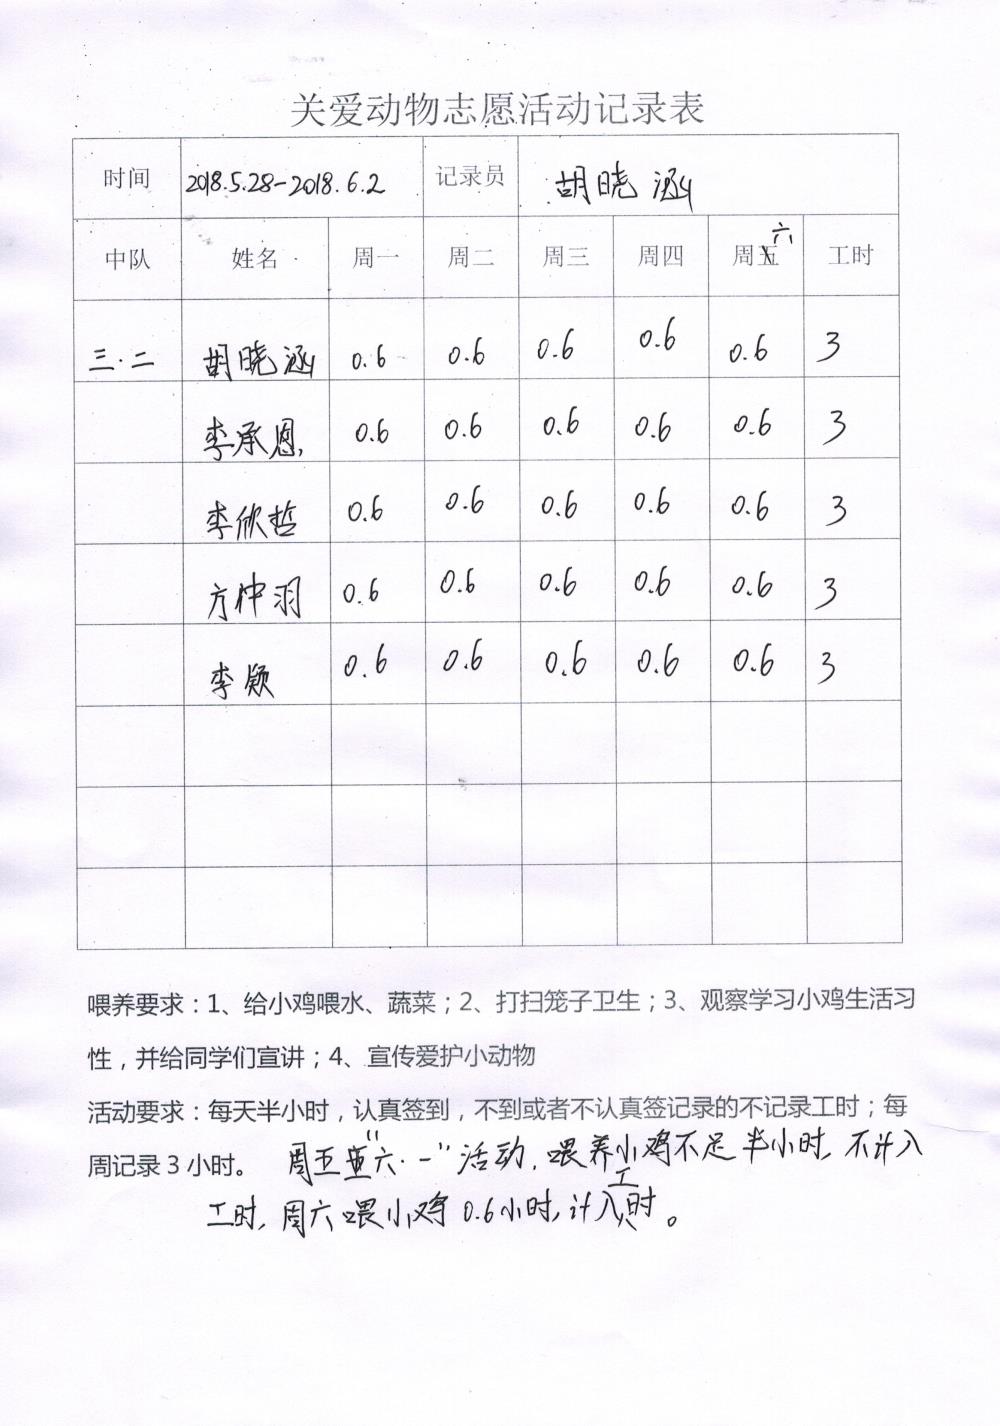 关爱动物志愿活动记录表
时间 2018.5.28-2018.6.2 记录员 胡晓涵
中队 姓名 周一 周二 周三 周四 周五六 工时
三.二 胡晓涵 0.6 0.6 0.6 0.6 0.6 3
李承恩 0.6 0.6 0.6 0.6 0.6 3
李欣哲 0.6 0.6 0.6 0.6 0.6 3
方仲羽 0.6 0.6 0.6 0.6 0.6 3
李颍 0.6 0.6 0.6 0.6 0.6 3
喂养要求：1、给小鸡喂水、蔬菜；2、打扫笼子卫生；3、观察学习小鸡生活习
性，并给同学们宣讲；4、宣传爱护小动物
活动要求：每天半小时，认真签到，不到或者不认真签记录的不记录工时；每
周记录3小时。 周五“六·一”活动，喂养小鸡不足半小时，不计入
工时，周六喂小鸡0.6小时，计入工时。